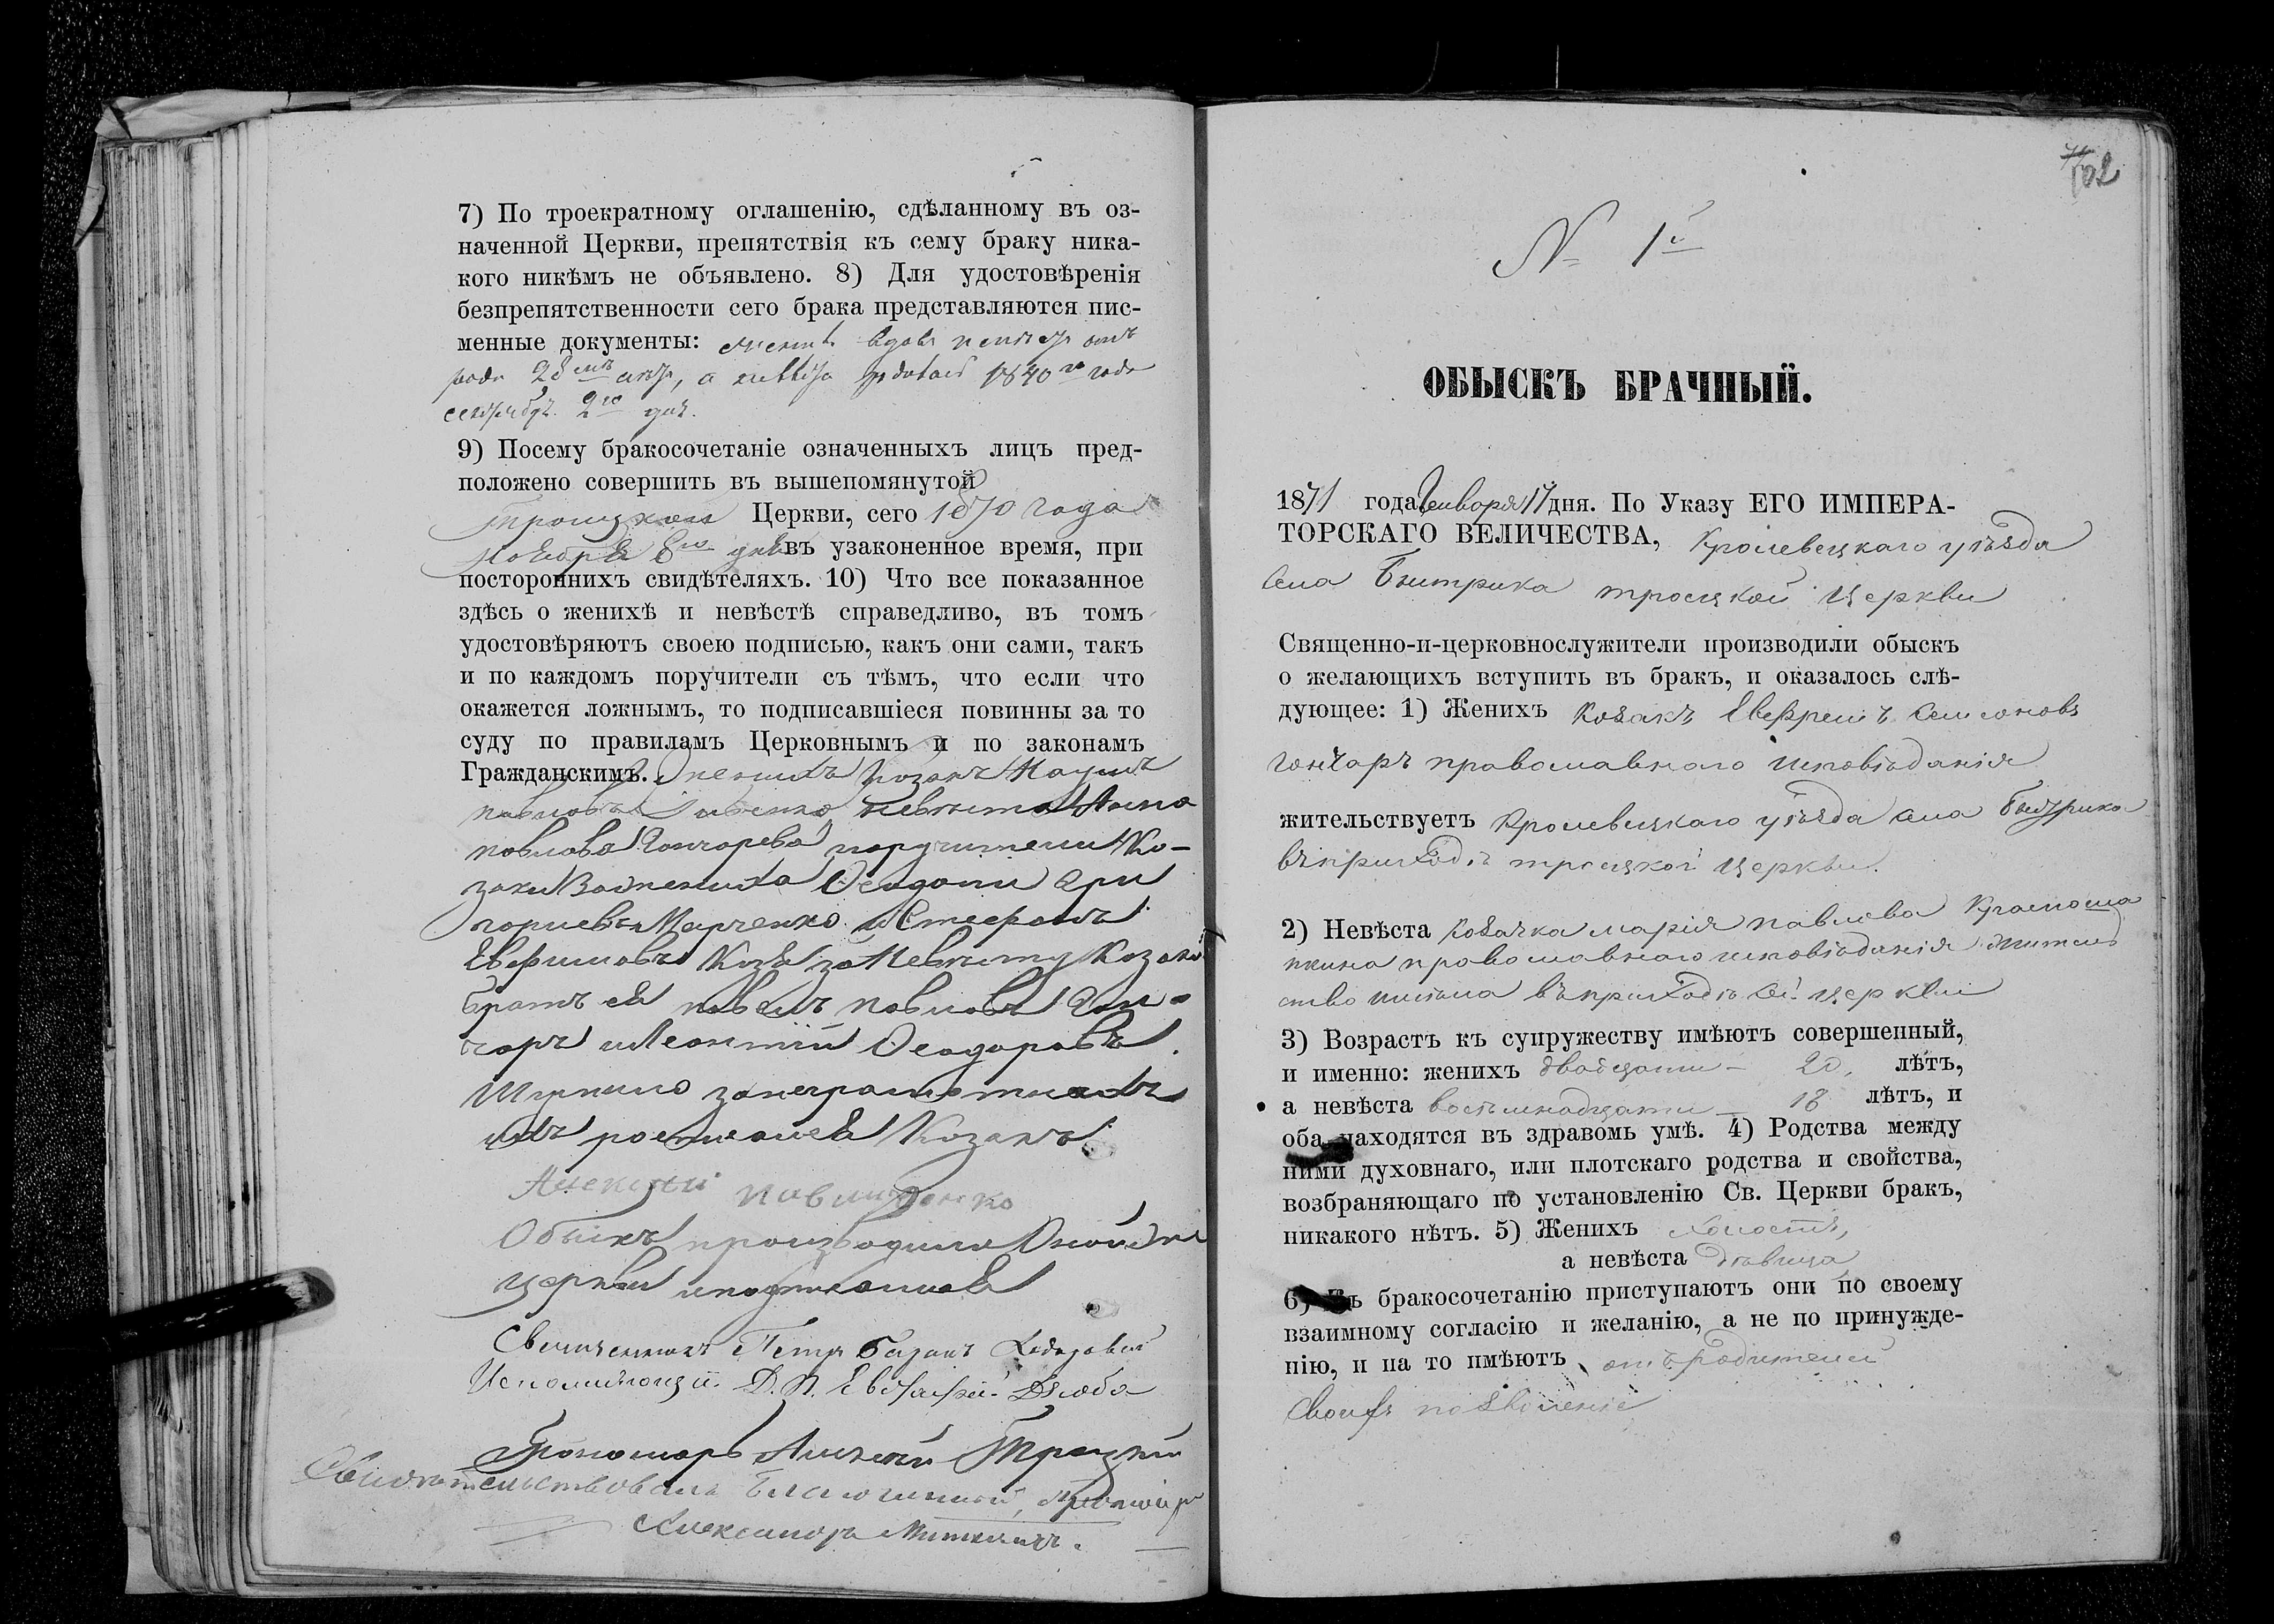 7) По троекратному оглашенію, сдѣланному въ оз-
наченной Церкви, препятствія къ сему браку ника-
кого никѣмъ не объявлено. 8) Для удостовѣренія
безпрепятственности сего брака представляются пис-
менные документы: женихъ вдовъ
28 а 1840го года
2го дня.
9) Посему бракосочетаніе означенныхъ лицъ пред-
положено совершить въ вышепомянутой
Троицкой Церкви, сего 1870 года
Ноября 8го дня въ узаконенное время, при
постороннихъ свидѣтеляхъ. 10) Что все показанное
здѣсь о женихѣ и невѣстѣ справедливо, въ томъ
удостовѣряютъ своею подписью, какъ они сами, такъ
и по каждомъ поручители съ тѣмъ, что если что
окажется ложнымъ, то подписавшіеся повинны за то
суду по правиламъ Церковнымъ и по законамъ
Гражданскимъ. Женихъ Козакъ Наумъ
павловъ невѣста Анна
павлова Гончарева поручители Ко-
заки За жениха Ѳеодоти Гри
горіевъ Марченко и Стефанъ
Евфимовъ Коза за Невѣсту Козаки
братъ ея павелъ павловъ Гон-
чаръ и Леонтій Ѳеодоровъ
за неграмотныхъ
ихъ росписался Козакъ
Алексѣй Павлюченко
Обыскъ производили Оной
церкви и подписались
Священникъ Петръ Базанъ
Исполняющій Д. П. Дзюба
Пономарь Алексѣй Троцкій
Свидѣтельствовалъ Благочинный, Протоіерей
Александръ Миткевичъ.
102
№ 1й
ОБЫСКЪ БРАЧНЫЙ.
1871 года Января 17 дня. По Указу ЕГО ИМПЕРА-
ТОРСКАГО ВЕЛИЧЕСТВА, Кролевецкаго уѣзда
села Быстрика троецкой церкви
Священно-и-церковнослужители производили обыскъ
о желающихъ вступить въ бракъ, и оказалось слѣ-
дующее: 1) Женихъ козакъ Евфремъ Самсоновъ
гончаръ православнаго исповѣданія
жительствуетъ Кролевецкаго уѣзда села Быстрика
въ приходѣ троецкой церкви.
2) Невѣста козачка марія павлова Красноша
пкина православнаго исповѣданія жителъ
ство имѣла въ приходѣ сей церкви
3) Возрастъ къ супружеству имѣютъ совершенный,
и именно: женихъ двадцати - 20. лѣтъ,
а невѣста восѣмнадцати - 18 лѣтъ, и
оба находятся въ здравомъ умѣ. 4) Родства между
ними духовнаго, или плотскаго родства и свойства,
возбраняющаго по установленію Св. Церкви бракъ,
никакого нѣтъ. 5) Женихъ холостъ,
а невѣста дѣвица
6) Къ бракосочетанію приступаютъ они по своему
взаимному согласію и желанію, а не по принужде-
нію, и на то имѣютъ отъ родителей
своихъ позволеніе